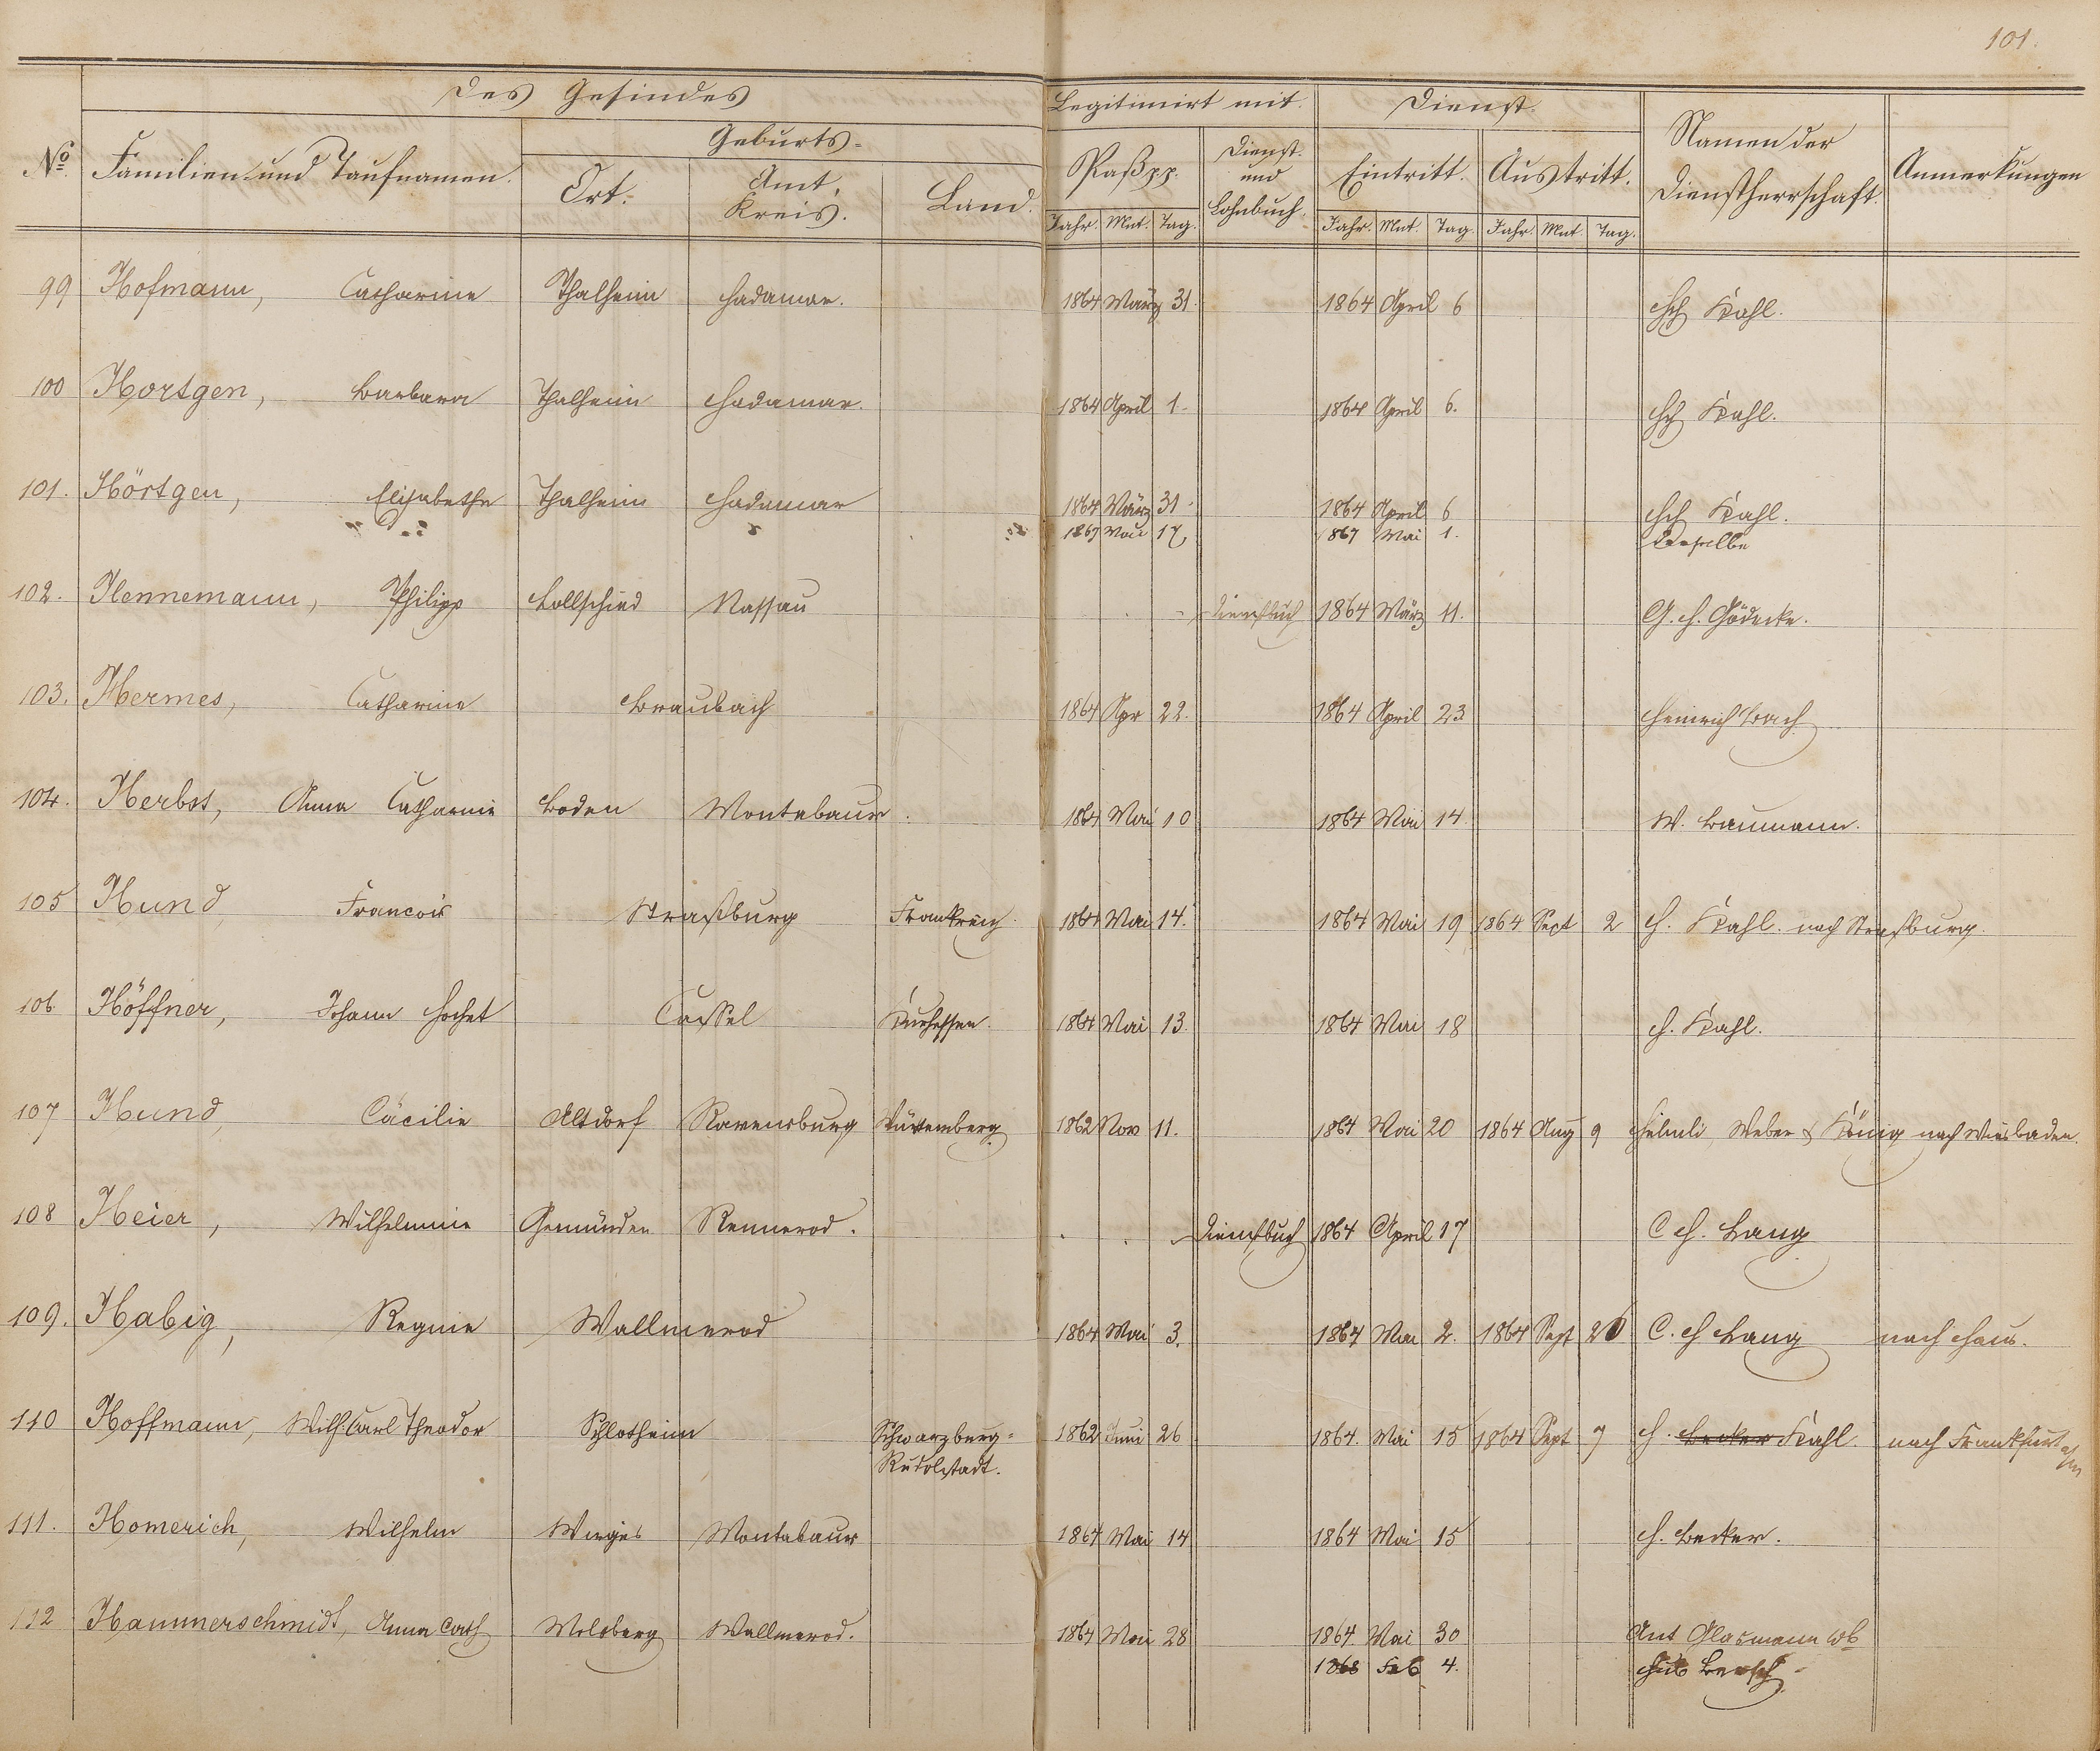 101.
Des Gesindes
Legitimirt mit.
Dienst.
No
Familien- und Taufnamen.
Geburts-
Ort.
Amt, Kreis.
Land.
Paß pp.
Dienst- und Lohnbuch.
Eintritt.
Austritt.
Namen der Dienstherrschaft.
Anmerkungen
Jahr. Mnt. Tag.
Jahr. Mnt. Tag. Jahr. Mnt Tag.
99 Hofmann, Catharine Thalheim Hadamar. 1864 März 31. 1864 April 6 Hch Kahl.
100 Hortgen, Barbara Thalheim Hadamar. 1864 April 1. 1864 April 6. Hch Kahl.
101. Hörtgen, Elisabethe Thalheim Hadamar 1864 März 31. 1864 April 6 Hch Kahl.
1867 Mai 1. Derselbe
102. Hennemann, Philipp Lollschied Nassau Dienstbuch 1864 März 11. G. H. Gödecke.
103. Hermes, Catharine Braubach 1864 Apr 22. 1864 April 23 Heinrich
104. Herbst, Anna Catharine Boden Montabaur. 1864 Mai 10 1864 Mai 14. W. Baumann.
105 Hund, Francois Straßburg Frankreich 1864 Mai 14. 1864 Mai 19 1864 Sept 2 H. Kahl. nach Straßburg.
106 Höffner, Johann Cassel Kurhessen. 1864 Mai 13. 1864 Mai 18 H. Kahl.
107 Hund, Cäcilie Altdorf Ravensburg Würtemberg 1862 Nov 11. 1864 Mai 20 1864 Aug 9 Weber & König nach Wiesbaden.
108 Heier, Wilhelmine Gemünden Rennerod. Dienstbuch 1864 April 17 C H. Lang
109. Habig, Regine Wallmerod 1864 Mai 3. 1864 Mai 2. 1864 Sept 26 C. H Lang nach Haus.
110 Hoffmann, Wilh. Carl Theodor Schlotheim Schwarzburg- 1862 Juni 26 1864. Mai 15 1864 Sept 7 H. Becker Kahl. nach Frankfurt a/m
Rudolstadt.
111. Homerich, Wilhelm Wirges Montabaur 1864 Mai 14 1864 Mai 15 H. Becker.
112 Hammerschmidt, Anna Cath Molsberg Wallmerod. 1864 Mai 28 1864 Mai 30 Ant Glasmann Wb
1868 Feb 4.